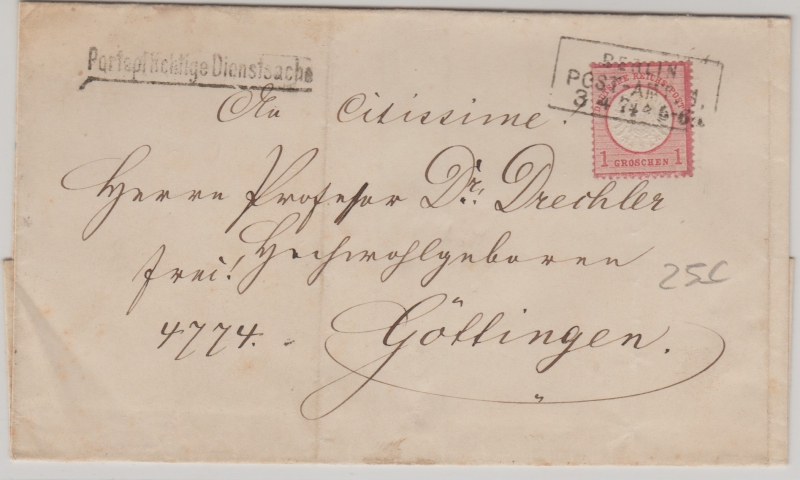 Portopflichtige Dienstsache
BERLIN
POST-A
3 4 74 * 5-6
1 GROSCHEN 1
An citissime!
Herrn Professor Dr. Drechler
frei! Hochwohlgeboren
4774. Göttingen.
25C